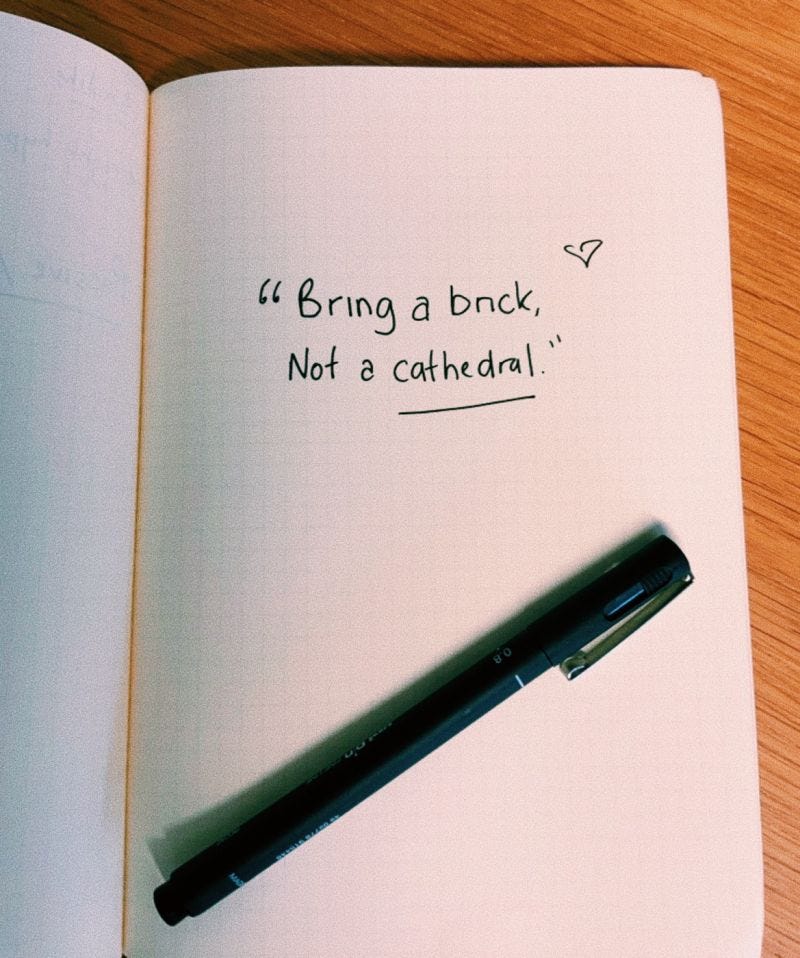 “Bring a brick,
Not a cathedral.”
0.8